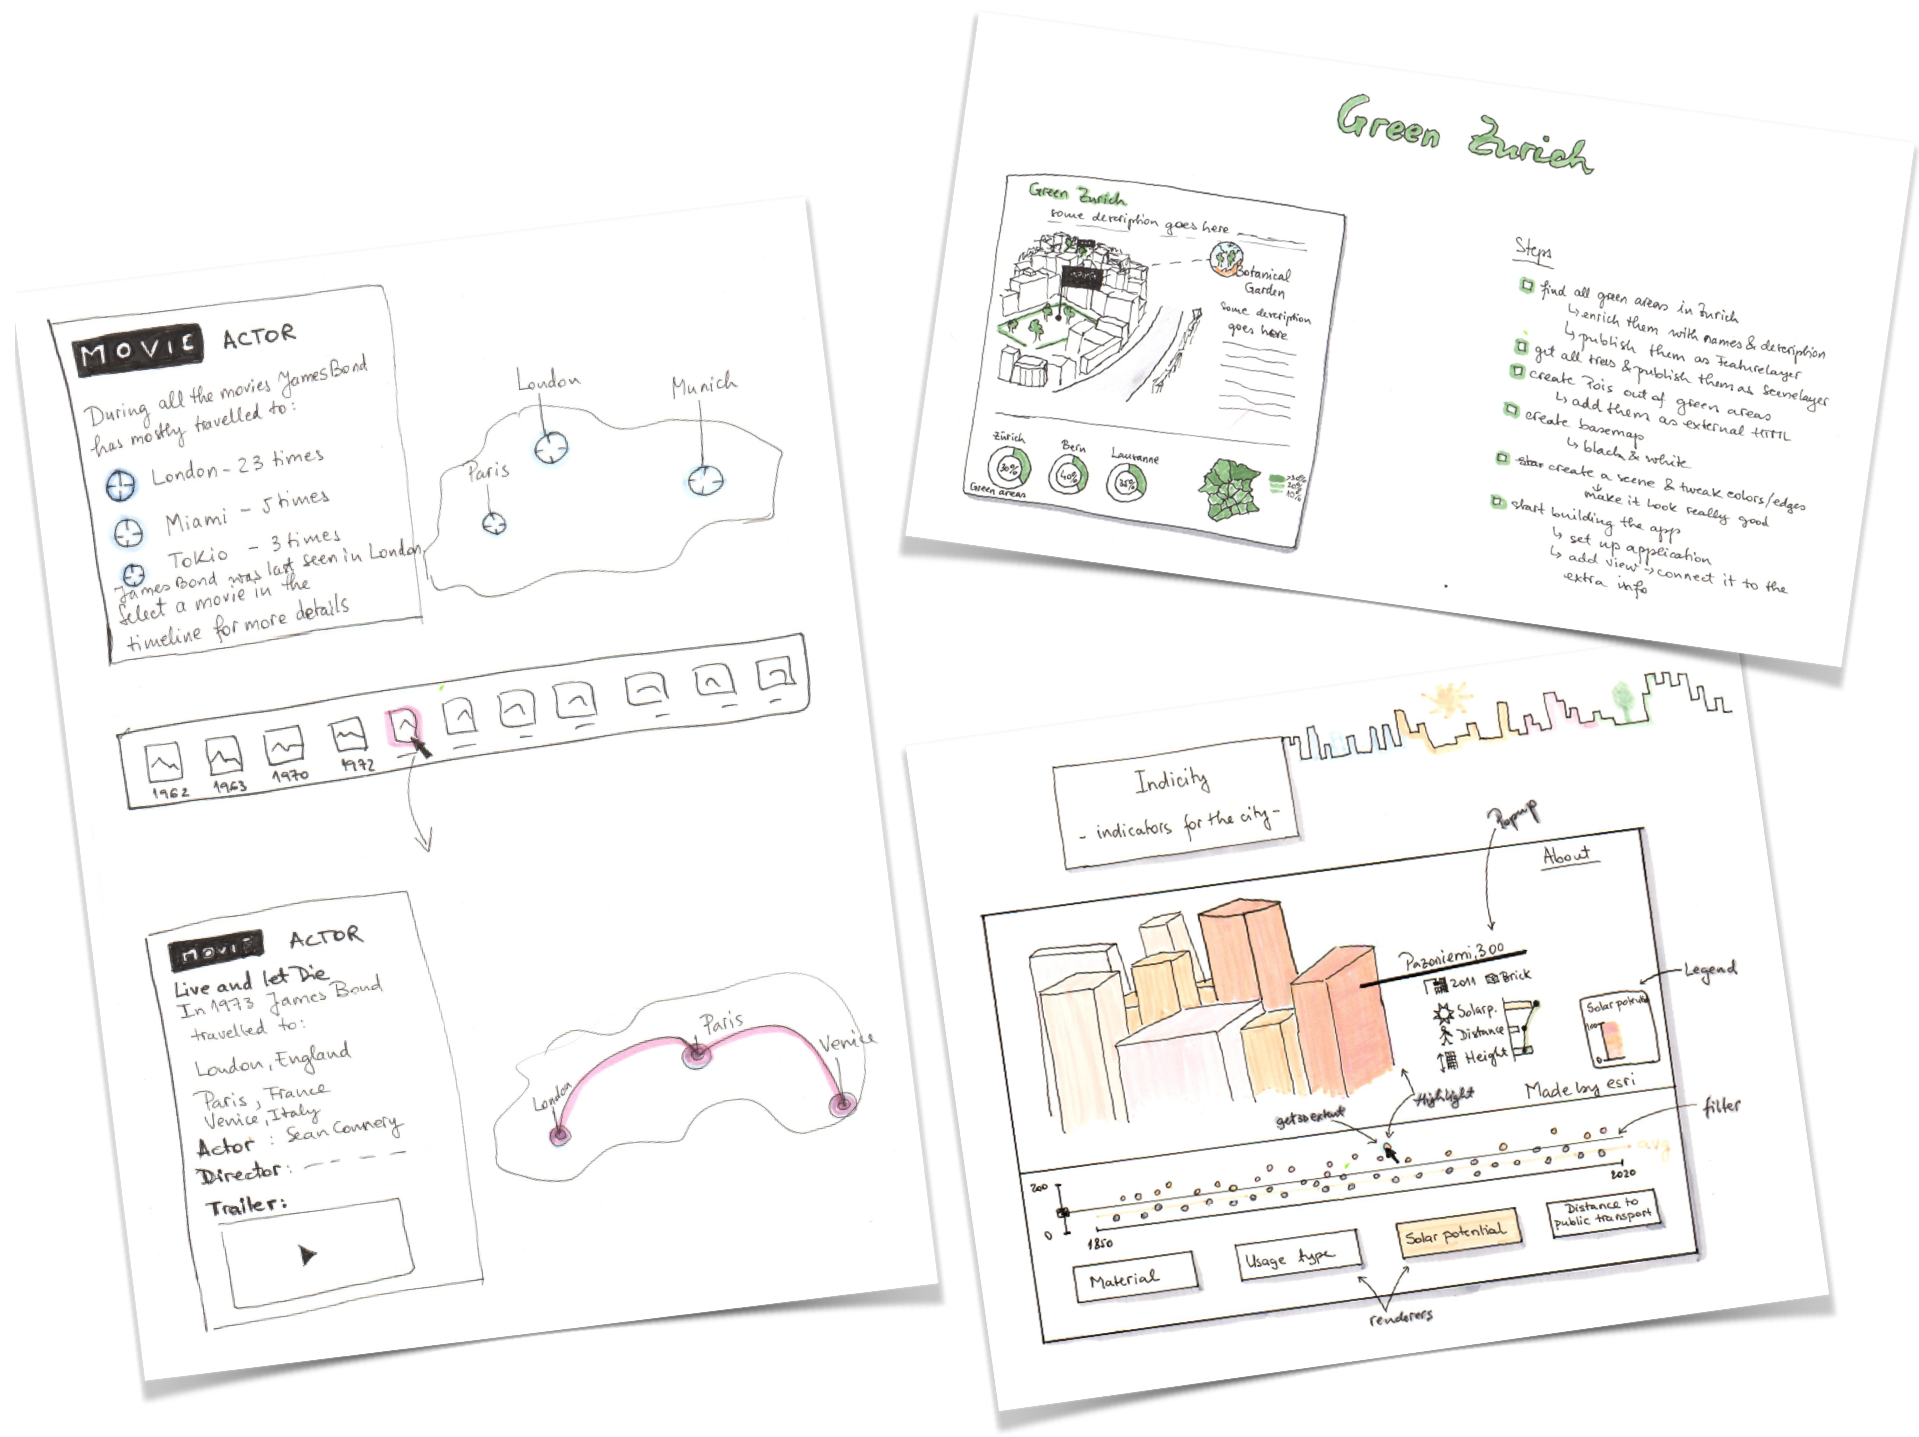 MOVIE ACTOR
During all the movies James Bond
has mostly travelled to:
London - 23 times
Miami - 5 times
Tokio - 3 times
James Bond was last seen in London
Select a movie in the
timeline for more details
London
Munich
Paris
1962
1963
1970
1972
MOVIE ACTOR
Live and let Die
In 1973 James Bond
travelled to:
London, England
Paris, France
Venice, Italy
Actor : Sean Connery
Director:
Trailer:
London
Paris
Venice
Green Zurich
Green Zurich
some description goes here
Botanical
Garden
Some description
goes here
Zürich
Bern
Lausanne
30%
40%
Green areas
>30%
20%
10%
Steps
find all green areas in Zurich
↳ enrich them with names & description
↳ publish them as Featurelayer
get all trees & publish them as Scenelayer
create Pois out of green areas
↳ add them as external HTML
create basemap
↳ black & white
star create a scene & tweak colors/edges
make it look really good
start building the app
↳ set up application
↳ add view → connect it to the
extra info
Indicity
- indicators for the city -
Popup
About
Pazoniemi, 300
2011 Brick
Solarp.
Distance
Height
Legend
Solar potential
100
0
Made by esri
get3Dextent
Highlight
filter
avg
200
0
1850
2020
Material
Usage type
Solar potential
Distance to
public transport
renderers